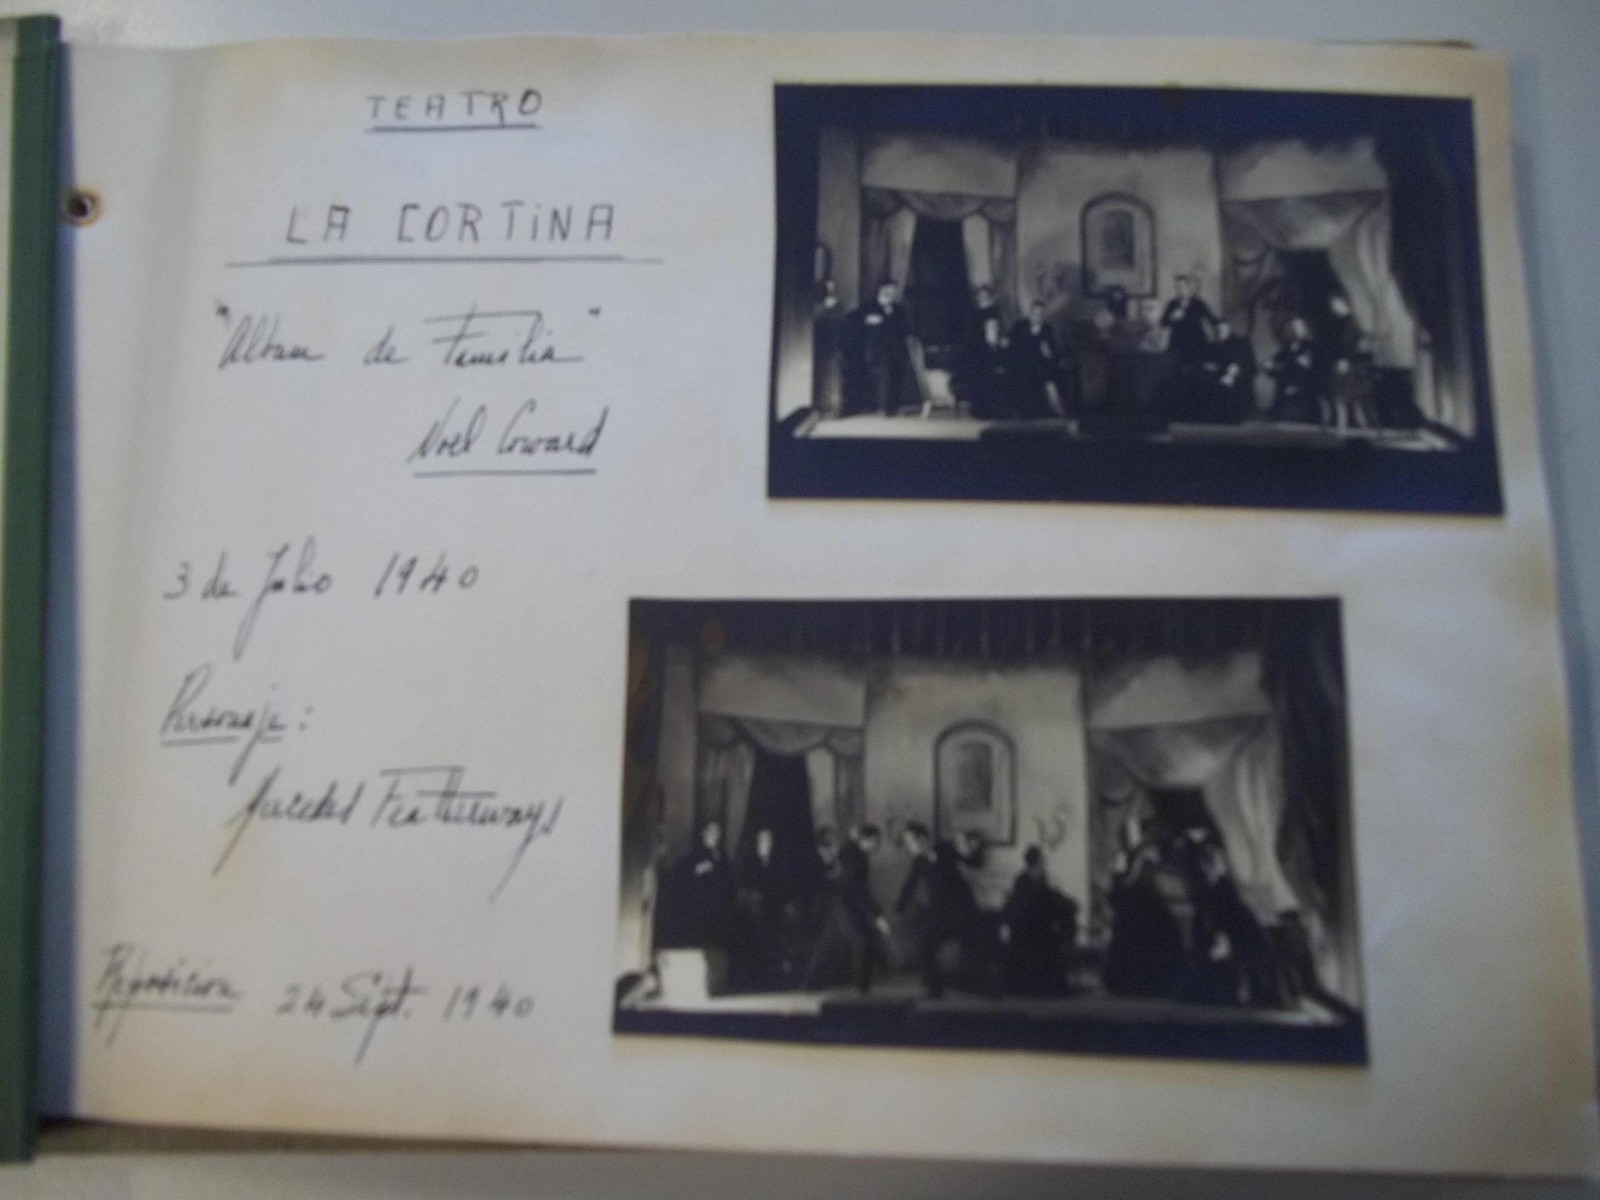 TEATRO
LA CORTINA
"Album de Familia"
Noel Coward
3 de Julio 1940
Personaje:
Featherways
Reposicion 24 Sept. 1940